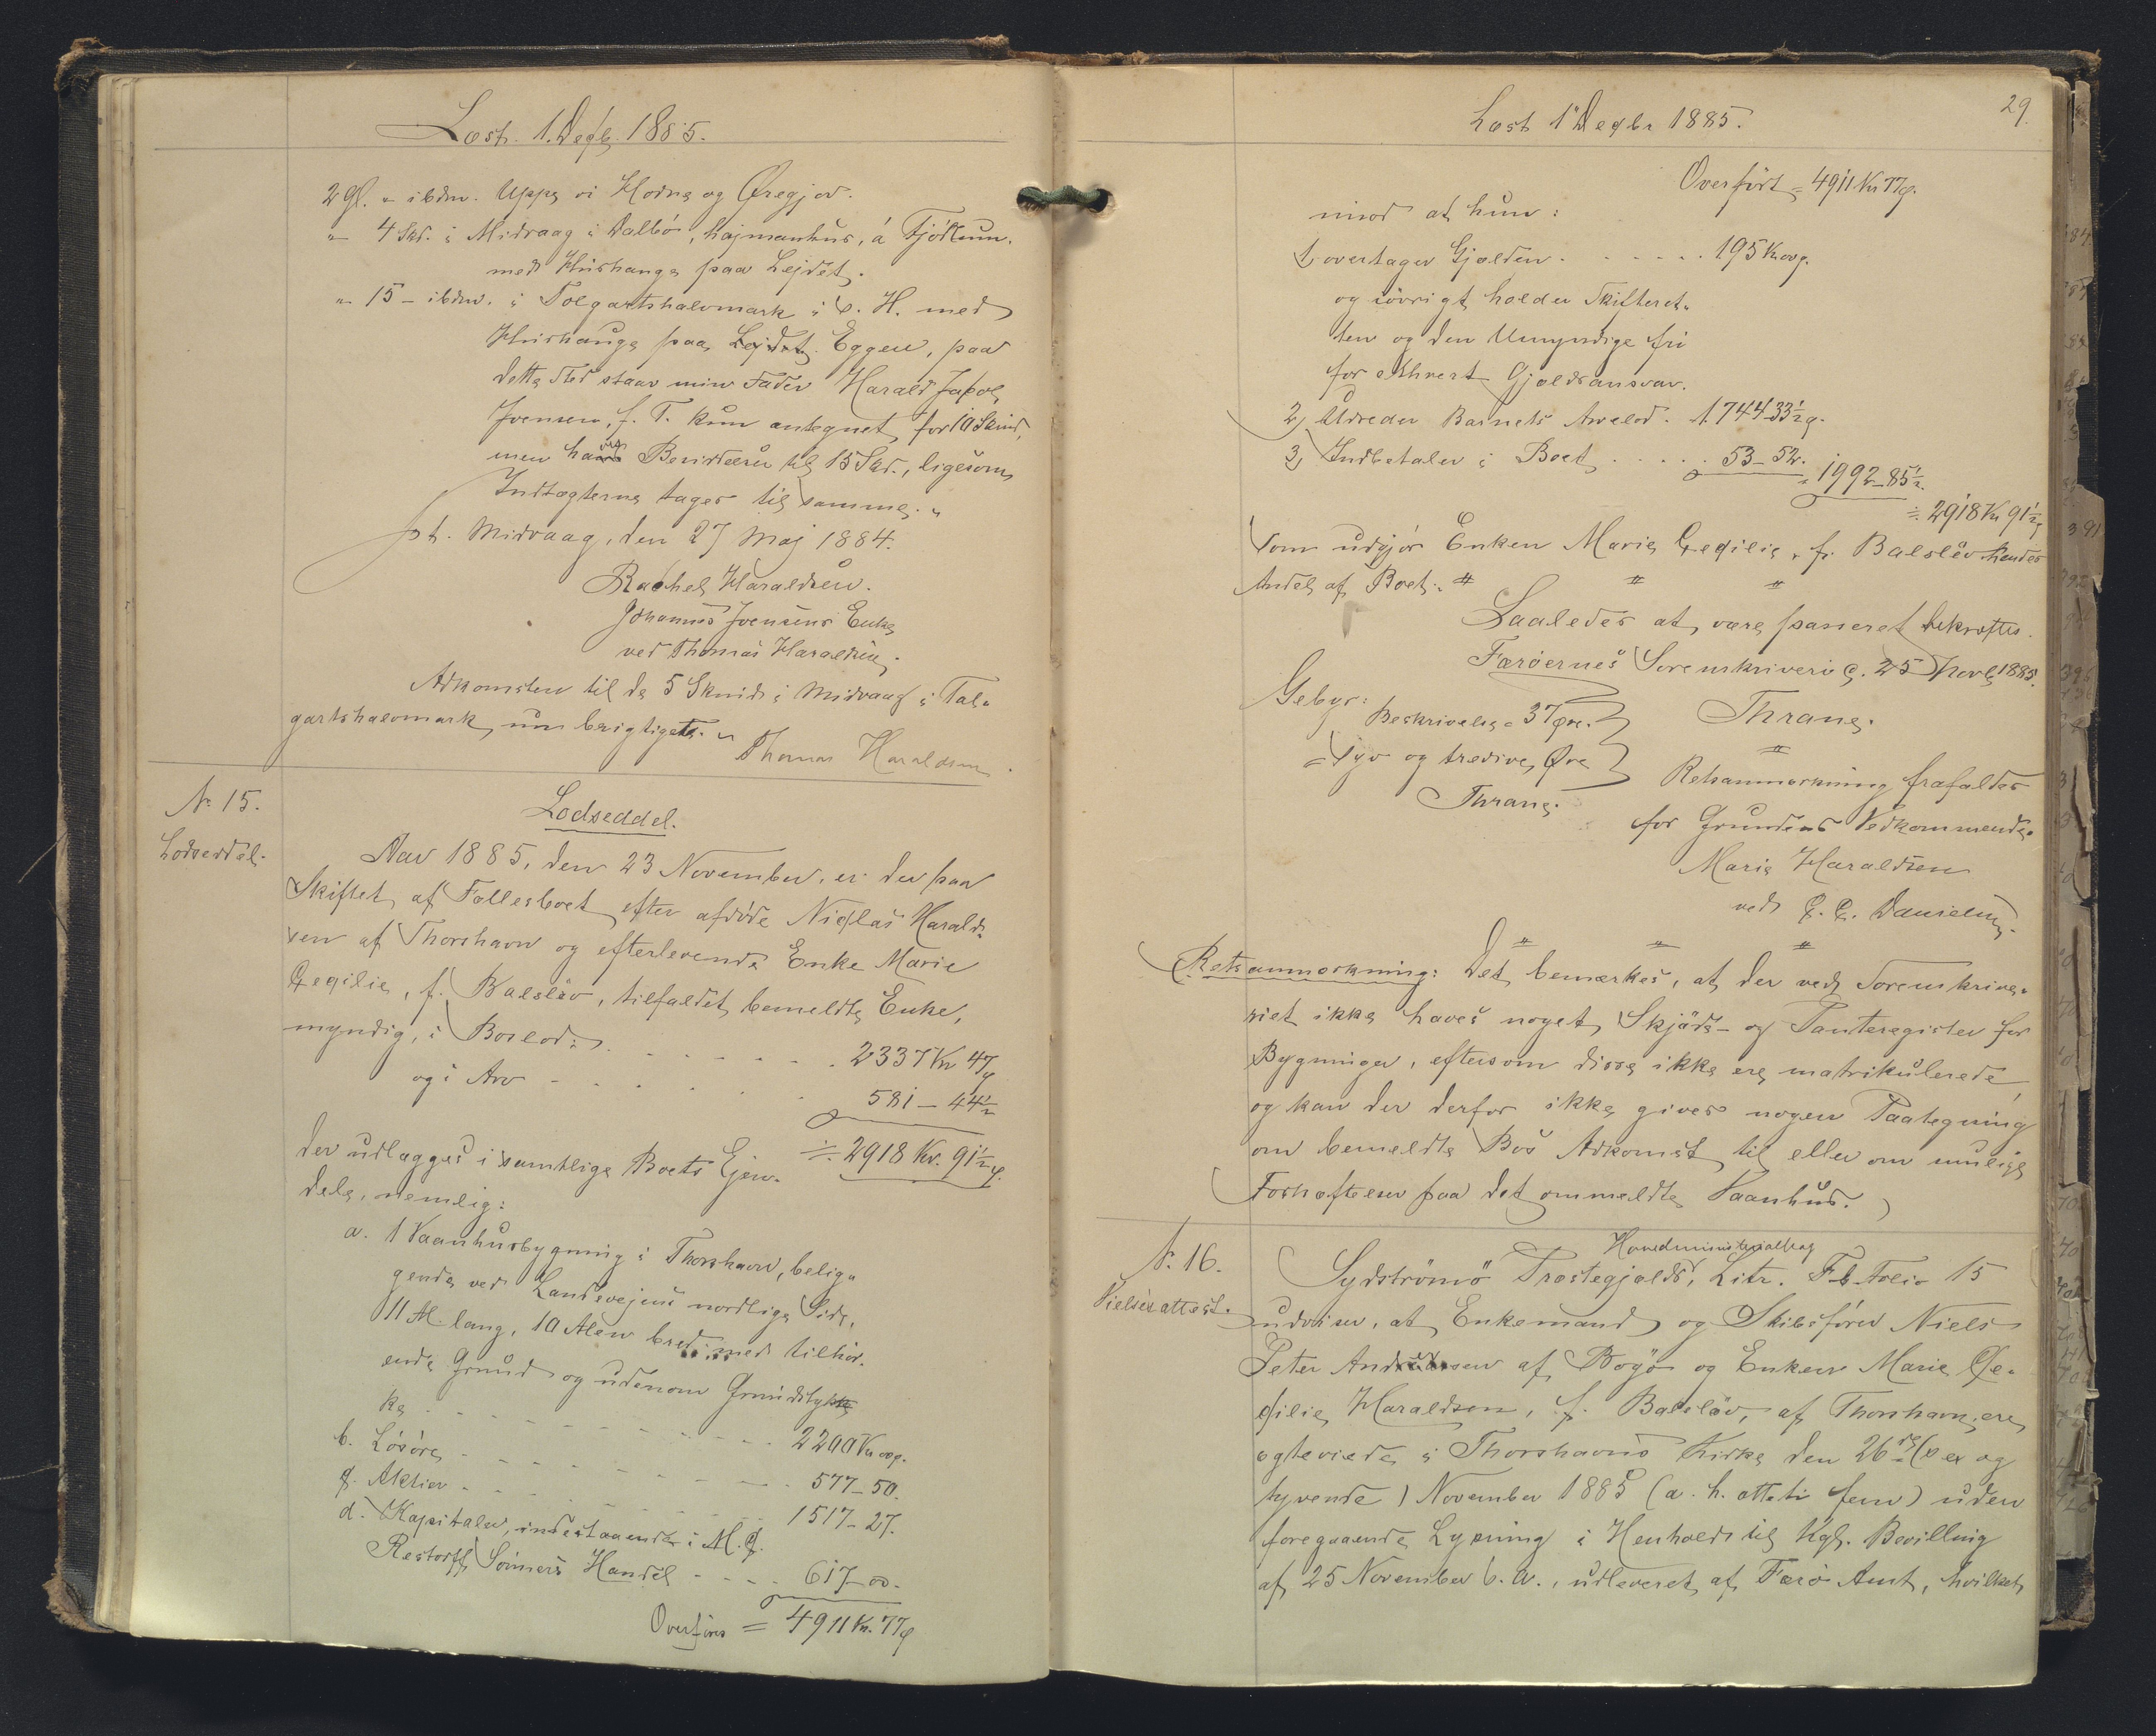 Læst. 1. Decbr. 1885.
2 Gl. " ibdm. Uppe oi Hodne og Øregjov.
" 4 Skd. i Midvaag i Dalbó, hajmanhus, á Fjóllum.
med Hushauge paa Lejdet.
" 15 - ibdm. i Tolgartshalvmark i V. H. med
Hushauge paa Lejdet. Eggen, paa
dette Sted staar min Fader Harald Jakob
Joensen, f. T. kun antegnet for 10 Skind,
men haves Beviserne til 15 Skd., ligesom
Indtægterne tages til samme. "
pt. Midvaag, den 27 Maj 1884.
Rachel Haraldsen.
Johannes Joensens Enke
ved Thomas Haraldsen.
Adkomsten til de 5 Skind i Midvaag i Tal-
gartshalvmark uberigtiget. "
Thomas Haraldsen.
No 15.
Lodseddel.
Lodseddel.
Aar 1885, den 23 November, er der paa
Skiftet af Fællesboet efter afdøde Niclas Harald-
sen af Thorshavn og efterlevende Enke Marie
Cecilie, f. Balsløv, tilfaldet bemeldte Enke,
myndig, i Boslod: . . . . . . 2337 Kr 47ø
og i Arv - . . . . . 581 - 44½
÷ 2918 Kr. 91½ø.
der udlægges i samtlige Boets Ejen-
dele, nemlig:
a. 1 Vaanhusbygning i Thorshavn, belig-
gende ved Landevejens nordlige Side,
11 Al. lang, 10 Alen bred med tilhør-
ende Grund og udenom Grundstyk
ke . . . . . . . . 2200 Kr oo ø.
b. Løsøre . . . . . . . 577 - 50.
c. Aktier . . . . . . . 1517 - 27.
d. Kapitaler, indestaaende i M. C.
Restorffs Sønners Handel - - - - 617 - oo -
Overføres = 4911 Kr. 77ø
29.
Læst 1 Decbr 1885.
Overført = 4911 Kr 77ø.
mod at hun:
1, overtager Gjælden . . . . . . 195 Kr oo ø.
og iøvrigt holder Skifteret-
ten og den Umyndige fri
for ethvert Gjældsansvar.
2, Udreder Barnets Arvelod . 1.744 - 33½ø.
3, Indbetaler i Boet . . . . . 53 - 52.
" 1992 - 85½.
÷ 2918 Kr 91½ø
som udgjør Enken Marie Cecilie, f. Balsløv hendes
Andel af Boet. "
Saaledes at være passeret bekræftes.
Færøernes Sorenskriveri d. 25 Novb 1885.
Gebyr:
Beskrivelse = 37 Øre.
= Syv og tredive Øre
Thrane.
Thrane.
Retsanmærkning frafaldes
for Grundens Vedkommende.
Marie Haraldsen
ved C. C. Danielsen.
Retsanmærkning: Det bemærkes, at der ved Sorenskrive-
riet ikke haves noget Skjøde- og Panteregister for
Bygninger, eftersom disse ikke ere matrikulerede
og kan der derfor ikke gives nogen Paategning
om bemeldte Bos Adkomst til eller om mulige
Forhæftelser paa det ommeldte Vaanhus.
No 16.
Vielsesattest.
Hovedministerialbog
Sydstrømø Præstegjælds, Litr. F b Folio 15
udviser, at Enkemand og Skibsfører Niels
Peter Andreasen af Bogø og Enken Marie Ce-
cilie Haraldsen, f. Balsløv, af Thorshavn, ere
ægteviede i Thorshavns Kirke den 26de (sex og
tyvende) November 1885 (a. h. otteti fem) uden
foregaaende Lysning i Henhold til Kgl. Bevilling
af 25 November d. A., udleveret af Færø Amt, hvilket